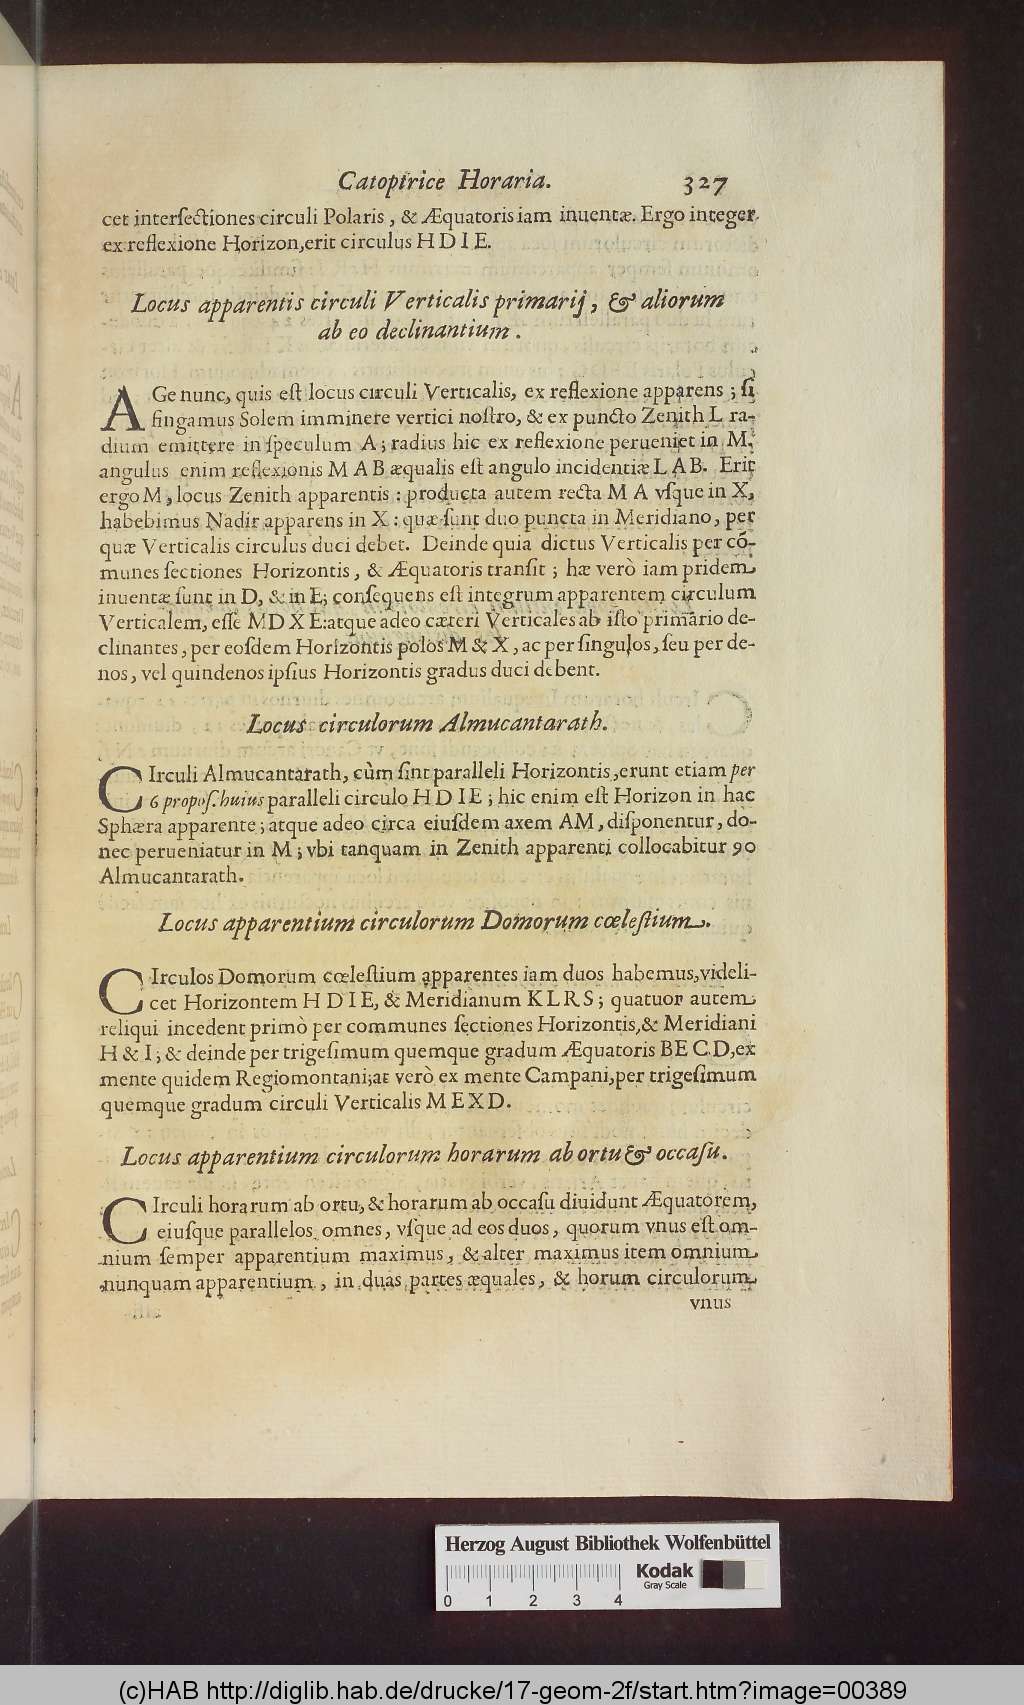 Catoptrice Horaria. 327
cet interſectiones circuli Polaris, & Æquatoris iam inuentæ. Ergo integer
ex reflexione Horizon, erit circulus H D I E.
Locus apparentis circuli Verticalis primarij, & aliorum
ab eo declinantium.
AGe nunc, quis eſt locus circuli Verticalis, ex reflexione apparens; ſi
fingamus Solem imminere vertici noſtro, & ex puncto Zenith L ra-
dium emittere in ſpeculum A; radius hic ex reflexione perueniet in M,
angulus enim reflexionis M A B æqualis eſt angulo incidentiæ L A B. Erit
ergo M, locus Zenith apparentis: producta autem recta M A vſque in X,
habebimus Nadir apparens in X: quæ ſunt duo puncta in Meridiano, per
quæ Verticalis circulus duci debet. Deinde quia dictus Verticalis per cõ-
munes ſectiones Horizontis, & Æquatoris tranſit; hæ verò iam pridem
inuentæ ſunt in D, & in E; conſequens eſt integrum apparentem circulum
Verticalem, eſſe M D X E: atque adeo cæteri Verticales ab iſto primario de-
clinantes, per eoſdem Horizontis polos M & X, ac per ſingulos, ſeu per de-
nos, vel quindenos ipſius Horizontis gradus duci debent.
Locus circulorum Almucantarath.
CIrculi Almucantarath, cùm ſint paralleli Horizontis, erunt etiam per
6 propoſ. huius paralleli circulo H D I E; hic enim eſt Horizon in hac
Sphæra apparente; atque adeo circa eiuſdem axem AM, diſponentur, do-
nec perueniatur in M; vbi tanquam in Zenith apparenti collocabitur 90
Almucantarath.
Locus apparentium circulorum Domorum cœleſtium.
CIrculos Domorum cœleſtium apparentes iam duos habemus, videli-
cet Horizontem H D I E, & Meridianum K L R S; quatuor autem
reliqui incedent primò per communes ſectiones Horizontis, & Meridiani
H & I; & deinde per trigeſimum quemque gradum Æquatoris B E C D, ex
mente quidem Regiomontani; at verò ex mente Campani, per trigeſimum
quemque gradum circuli Verticalis M E X D.
Locus apparentium circulorum horarum ab ortu & occaſu.
CIrculi horarum ab ortu, & horarum ab occaſu diuidunt Æquatorem,
eiuſque parallelos omnes, vſque ad eos duos, quorum vnus eſt om-
nium ſemper apparentium maximus, & alter maximus item omnium
nunquam apparentium, in duas partes æquales, & horum circulorum
vnus
Herzog August Bibliothek Wolfenbüttel
Kodak
Gray Scale
0 1 2 3 4
(c)HAB http://diglib.hab.de/drucke/17-geom-2f/start.htm?image=00389